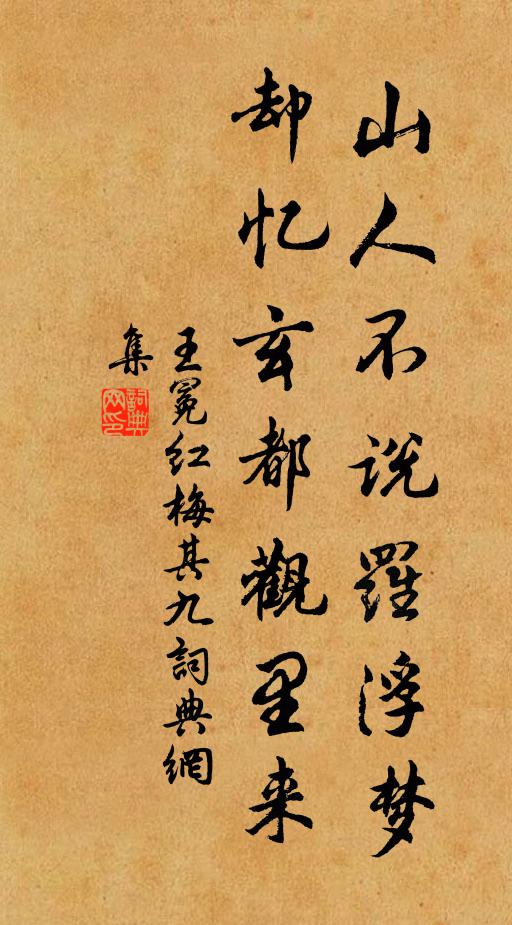 山人不说羅浮梦
却忆玄都觀里来
王冕红梅其九詞典網
集
詞典
网印